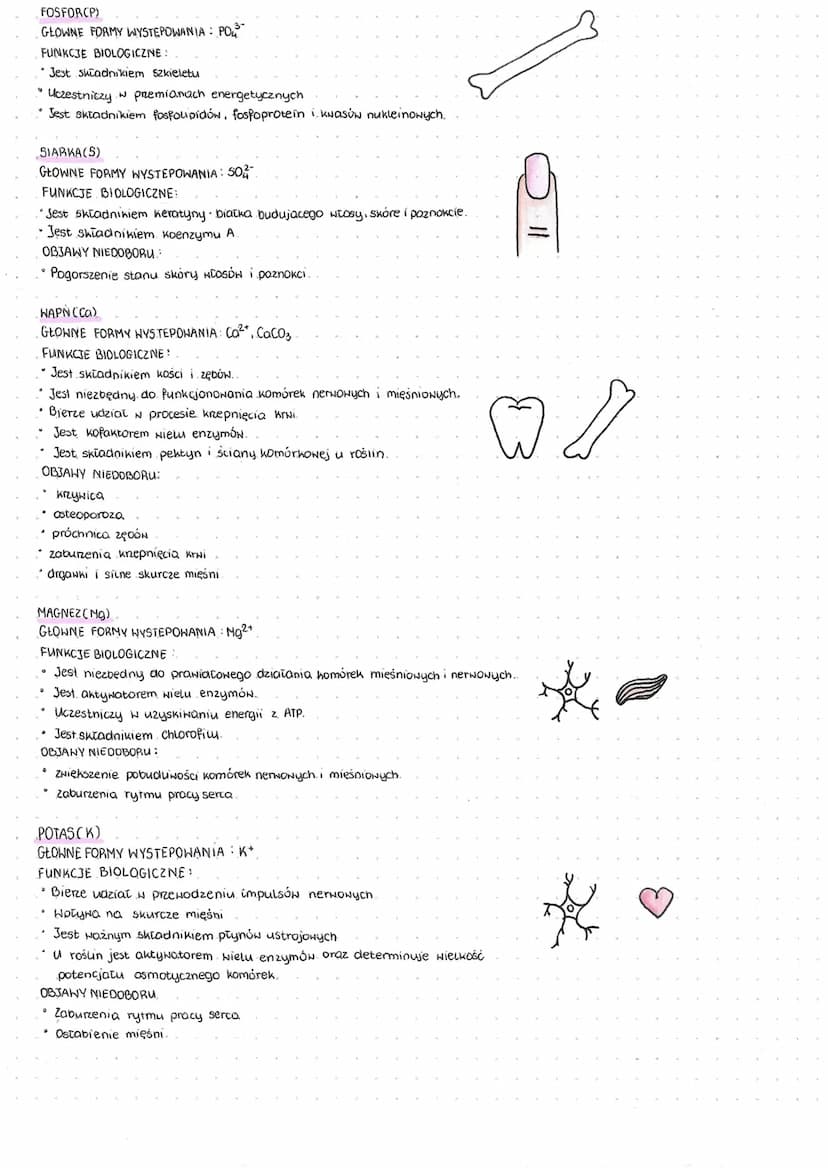 FOSFOR(P)
GŁOWNE FORMY WYSTĘPOWANIA : PO₄³⁻
FUNKCJE BIOLOGICZNE :
• Jest składnikiem szkieletu
• Uczestniczy w przemianach energetycznych
• Jest składnikiem fosfolipidów, fosfoprotein i kwasów nukleinowych.
SIARKA(S)
GŁOWNE FORMY WYSTEPOWANIA : SO₄²⁻
FUNKCJE BIOLOGICZNE:
• Jest składnikiem keratyny - białka budującego włosy, skóre i paznokcie.
• Jest składnikiem koenzymu A
OBJAWY NIEDOBORU :
• Pogorszenie stanu skóry włosów i paznokci.
WAPŃ (Ca)
GŁOWNE FORMY WYSTEPOWANIA : Ca²⁺, CaCO₃
FUNKCJE BIOLOGICZNE :
• Jest składnikiem kości i zębów.
• Jest niezbędny do funkcjonowania komórek nerwowych i mięśniowych.
• Bierze udział w procesie krzepnięcia krwi
• Jest kofaktorem wielu enzymów.
• Jest składnikiem pektyn i ściany komórkowej u roślin.
OBJAWY NIEDOBORU:
• krzywica
• osteoporoza
• próchnica zębów
• zaburzenia krzepnięcia krwi
• drgawki i silne skurcze mięśni
MAGNEZ(Mg)
GŁOWNE FORMY WYSTEPOWANIA : Mg²⁺
FUNKCJE BIOLOGICZNE :
• Jest niezbedny do prawiatowego działania komórek mięśniowych i nerwowych.
• Jest aktywatorem wielu enzymów.
• Uczestniczy w uzyskiwaniu energii z ATP.
• Jest składnikiem chlorofilu.
OBJAWY NIEDOBORU :
• zwiększenie pobudliwości komórek nerwowych i mięśniowych.
• zaburzenia rytmu pracy serca
POTAS(K)
GŁOWNE FORMY WYSTEPOWANIA : K⁺
FUNKCJE BIOLOGICZNE :
• Bierze udział w przewodzeniu impulsów nerwowych
• Wpływa na skurcze mięśni
• Jest ważnym składnikiem płynów ustrojowych
• U roślin jest aktywatorem wielu enzymów oraz determinuje wielkość
potencjału osmotycznego komórek.
OBJAWY NIEDOBORU
• Zaburzenia rytmu pracy serca
• Osłabienie mięśni.